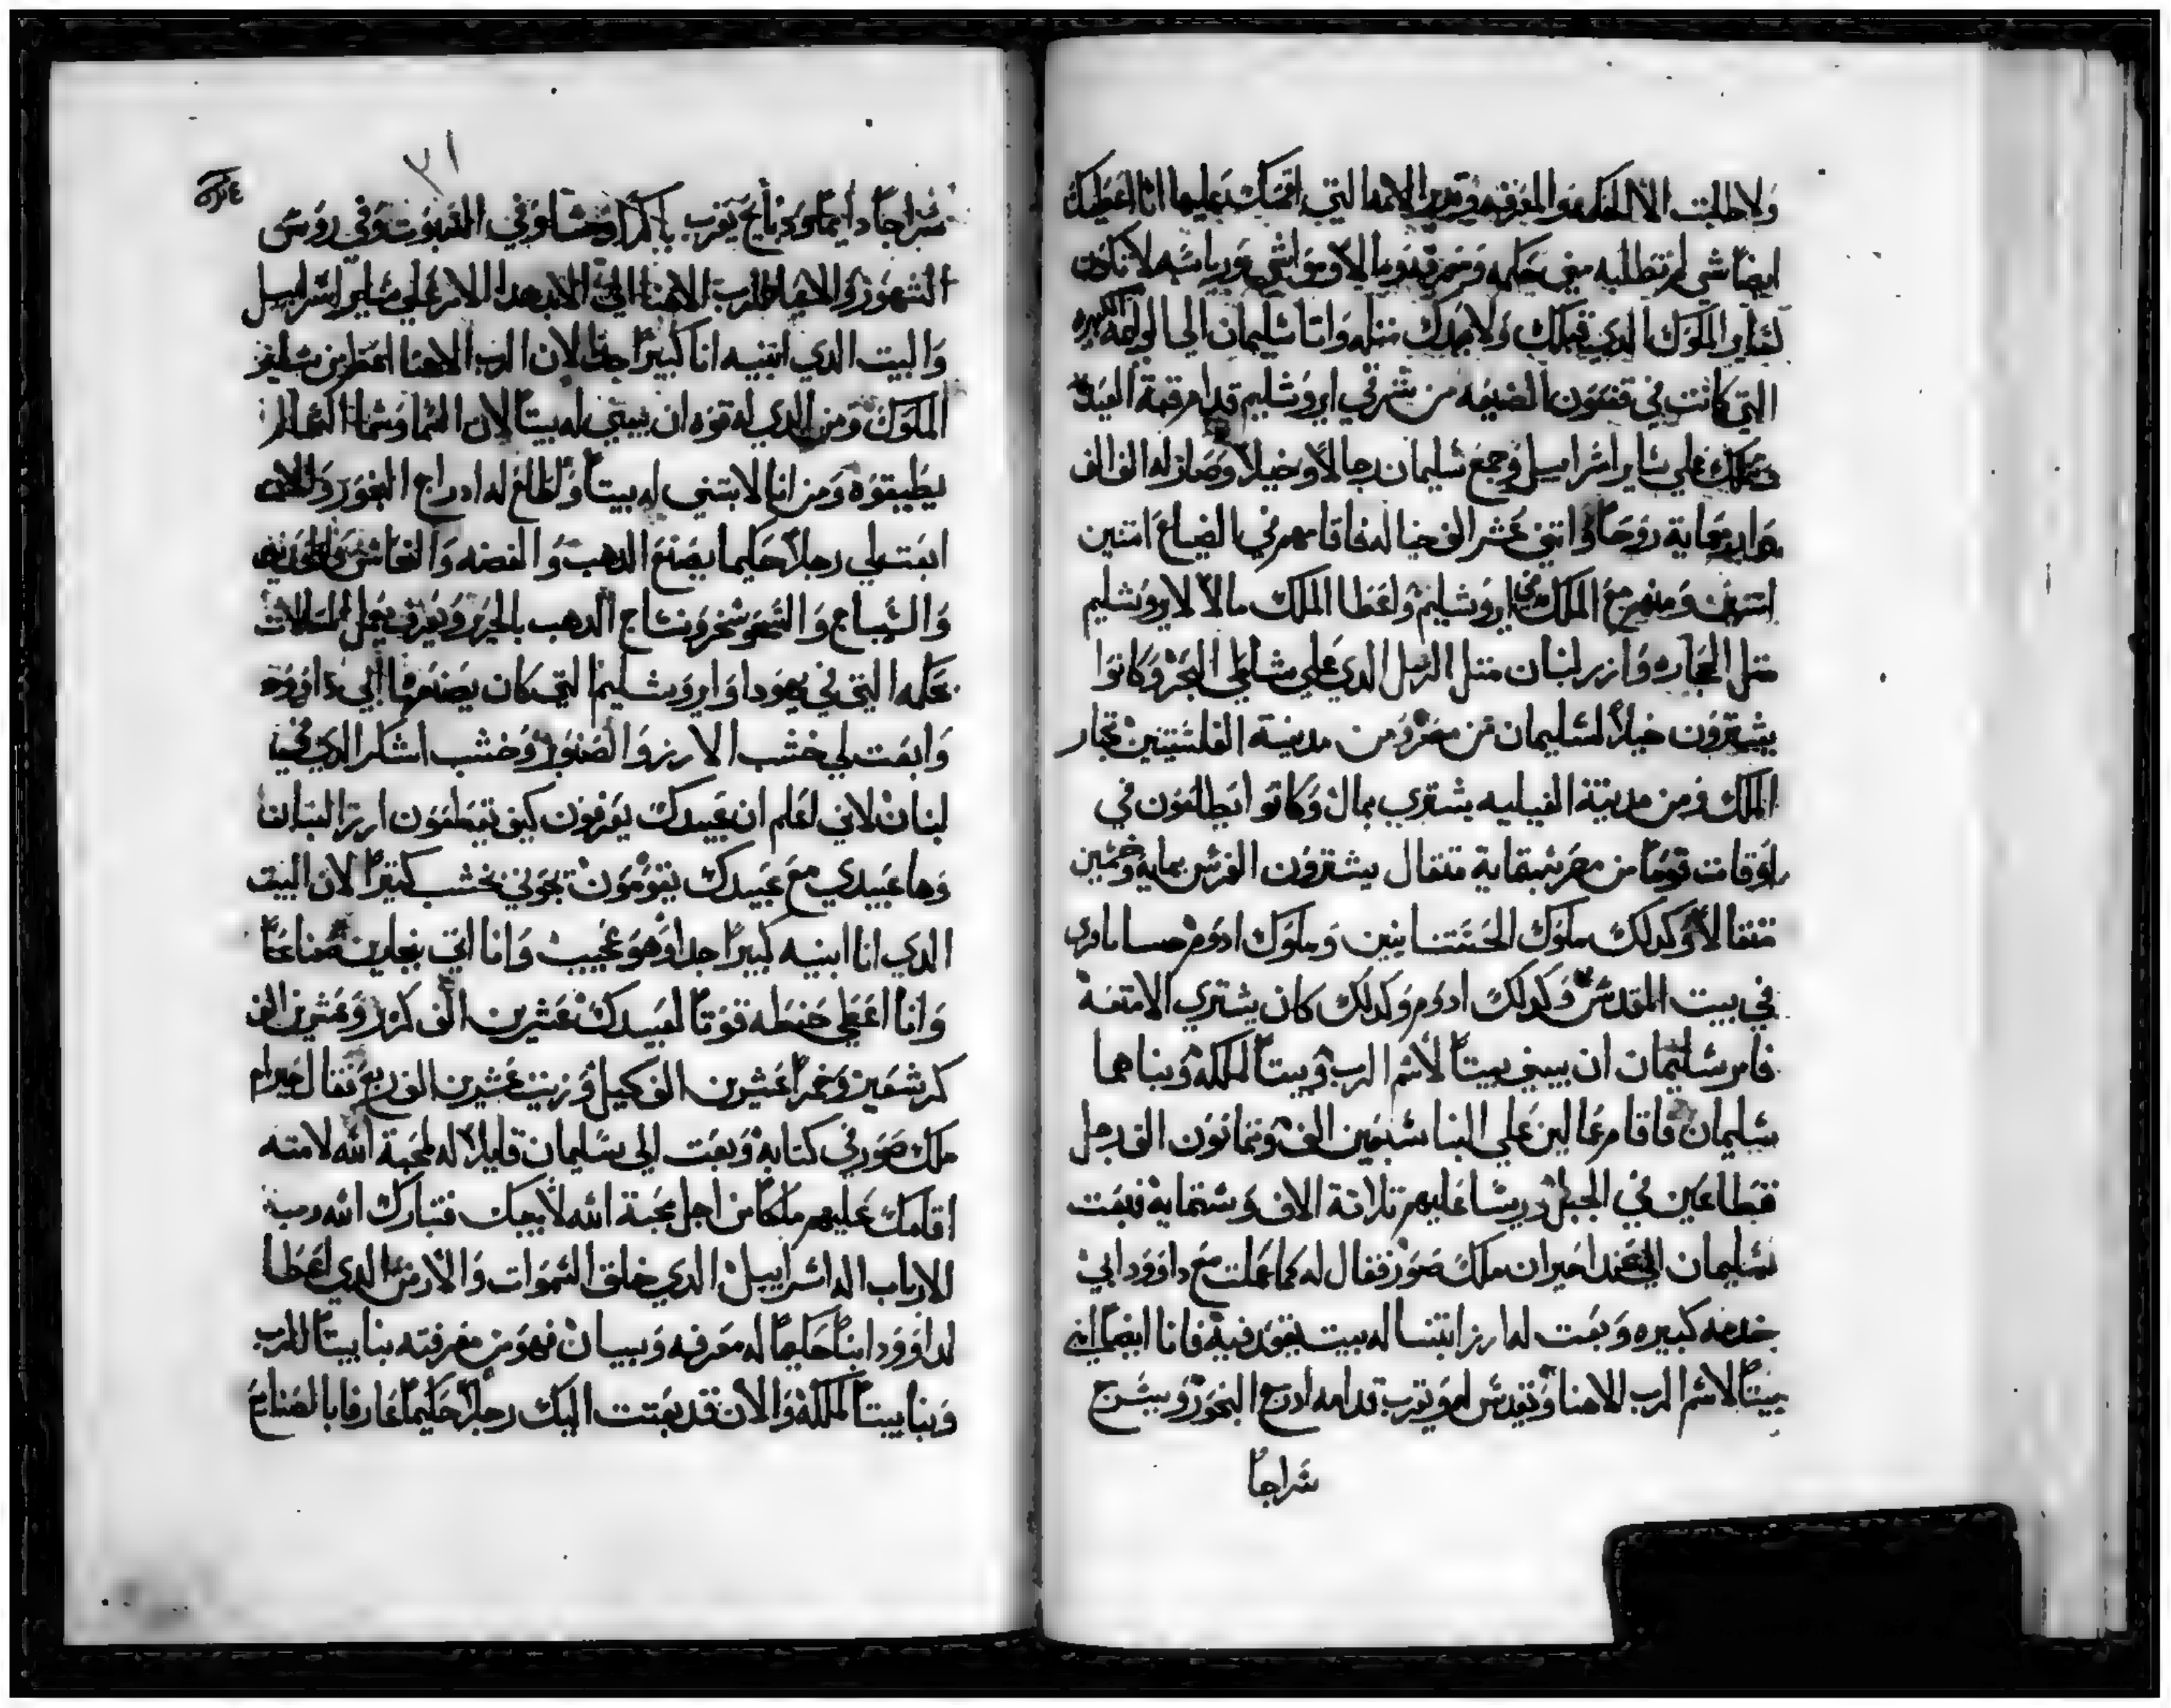 ولا طلبت الا الحكمه والمعرفه وتدبير الامه التي اقمتك عليها انا اعطيك
ايضا شي لم تطلبه مني حكمه ومعرفه ومالا ومواشي ورياسه لا تكون
لساير الملوك الدي قبلك ولا بعدك متله واتا سليمان الي الوليمه الكبيره
التي كانت في قنعون الضيعه من شرقي ايروشليم قدام قبة العهد
وتملك علي ساير اسراييل وجمع سليمان رجالا وخيلا وصار له الف الف
واربعماية زوجا واتني عشر الف خيال فاقامهم في الضياع امتنين
ومنهم مع الملك في ايروشليم واعطا الملك مالا لايروشليم
متل الحجاره وارز لبنان متل الرمل الدي علي شاطي البحر وكانوا
يشترون خيلا لسليمان من مصر ومن مدينة الفلسنيين تجار
الملك ومن مدينة الفيليه يشتري بمال وكانوا يطلعون في
اوقات قوما من مصر بستماية متقال يشترون الفرس بمايه وخمسين
متقالا وكدلك ملوك الحتتانيين وملوك ادوم
في بيت المقدس وكدلك ادوم وكدلك كان يشتري الامتعه
فامر سليمان ان يبني بيتا لاسم الرب وبيتا للملكه وبناهما
سليمان فاقام عمالين علي البنا سبعين الف وتمانون الف رجل
قطاعين في الجبل وريسا عليهم تلاتة الاف وستماية فبعت
سليمان الي عند احيران ملك صور فقال له كما عملت مع داوود ابي
خدمه كبيره وبعت له ارز ابتنا له بيت يقعد فيه فانا ايضا ابني
بيتا لاسم الرب الاهنا وتقدس له ويقرب قدامه ادرج البخور ويسرج
سراجا
٣١
سراجا دايما ودبايح يقرب باكرا وعشا وفي السبوت وفي روس
الشهور والاعياد للرب الاهنا الي الابد هدا الامر علي ساير اسراييل
والبيت الدي ابنيه انا كبيرا جدا لان الرب الاهنا اعظم من ساير
الملوك ومن الدي له قوه ان يبني له بيتا لان السما وسما السما لم
يطيقوه ومن انا لابتني له بيتا واطالع له ادراج البخور والان
ابعت لي رجلا حكيما يصنع الدهب والفضه والنحاس والحديد
ونساج الدهب بالحرير ويعرف يعمل
عمله التي في يهودا وايروشليم التي كان يصنعها ابي داوود
وابعت لي خشب الارز والصنوبر وخشب اشكر الدي في
لبنان لاني اعلم ان عبيدك يعرفون كيف يقطعون ارز اللبنان
وها عبيدي مع عبيدك يقومون تجوني بخشب كتيرا لان البيت
الدي انا ابنيه كبيرا جدا وهو عجيب وانا اتي بنجارين صناعا
وانا اعطي حنطه قوتا لعبيدك عشرين الف كر وعشرين الف
كر شعير وخمرا عشرين الف كيل وزيت عشرين الف ربع فقال حيرام
ملك صور في كتابه وبعت الي سليمان قايلا له لمحبة الله لامته
اقامك عليهم ملكا من اجل محبة الله لابيك فتبارك الله رب
الارباب اله اسراييل الدي خلق السموات والارض الدي اعطا
لداوود ابنا حكيما له معرفه وبيان فهو من معرفته بنا بيتا للرب
وبنا بيتا لملكه والان قد بعتت اليك رجلا حكيما عارفا بالصنايع